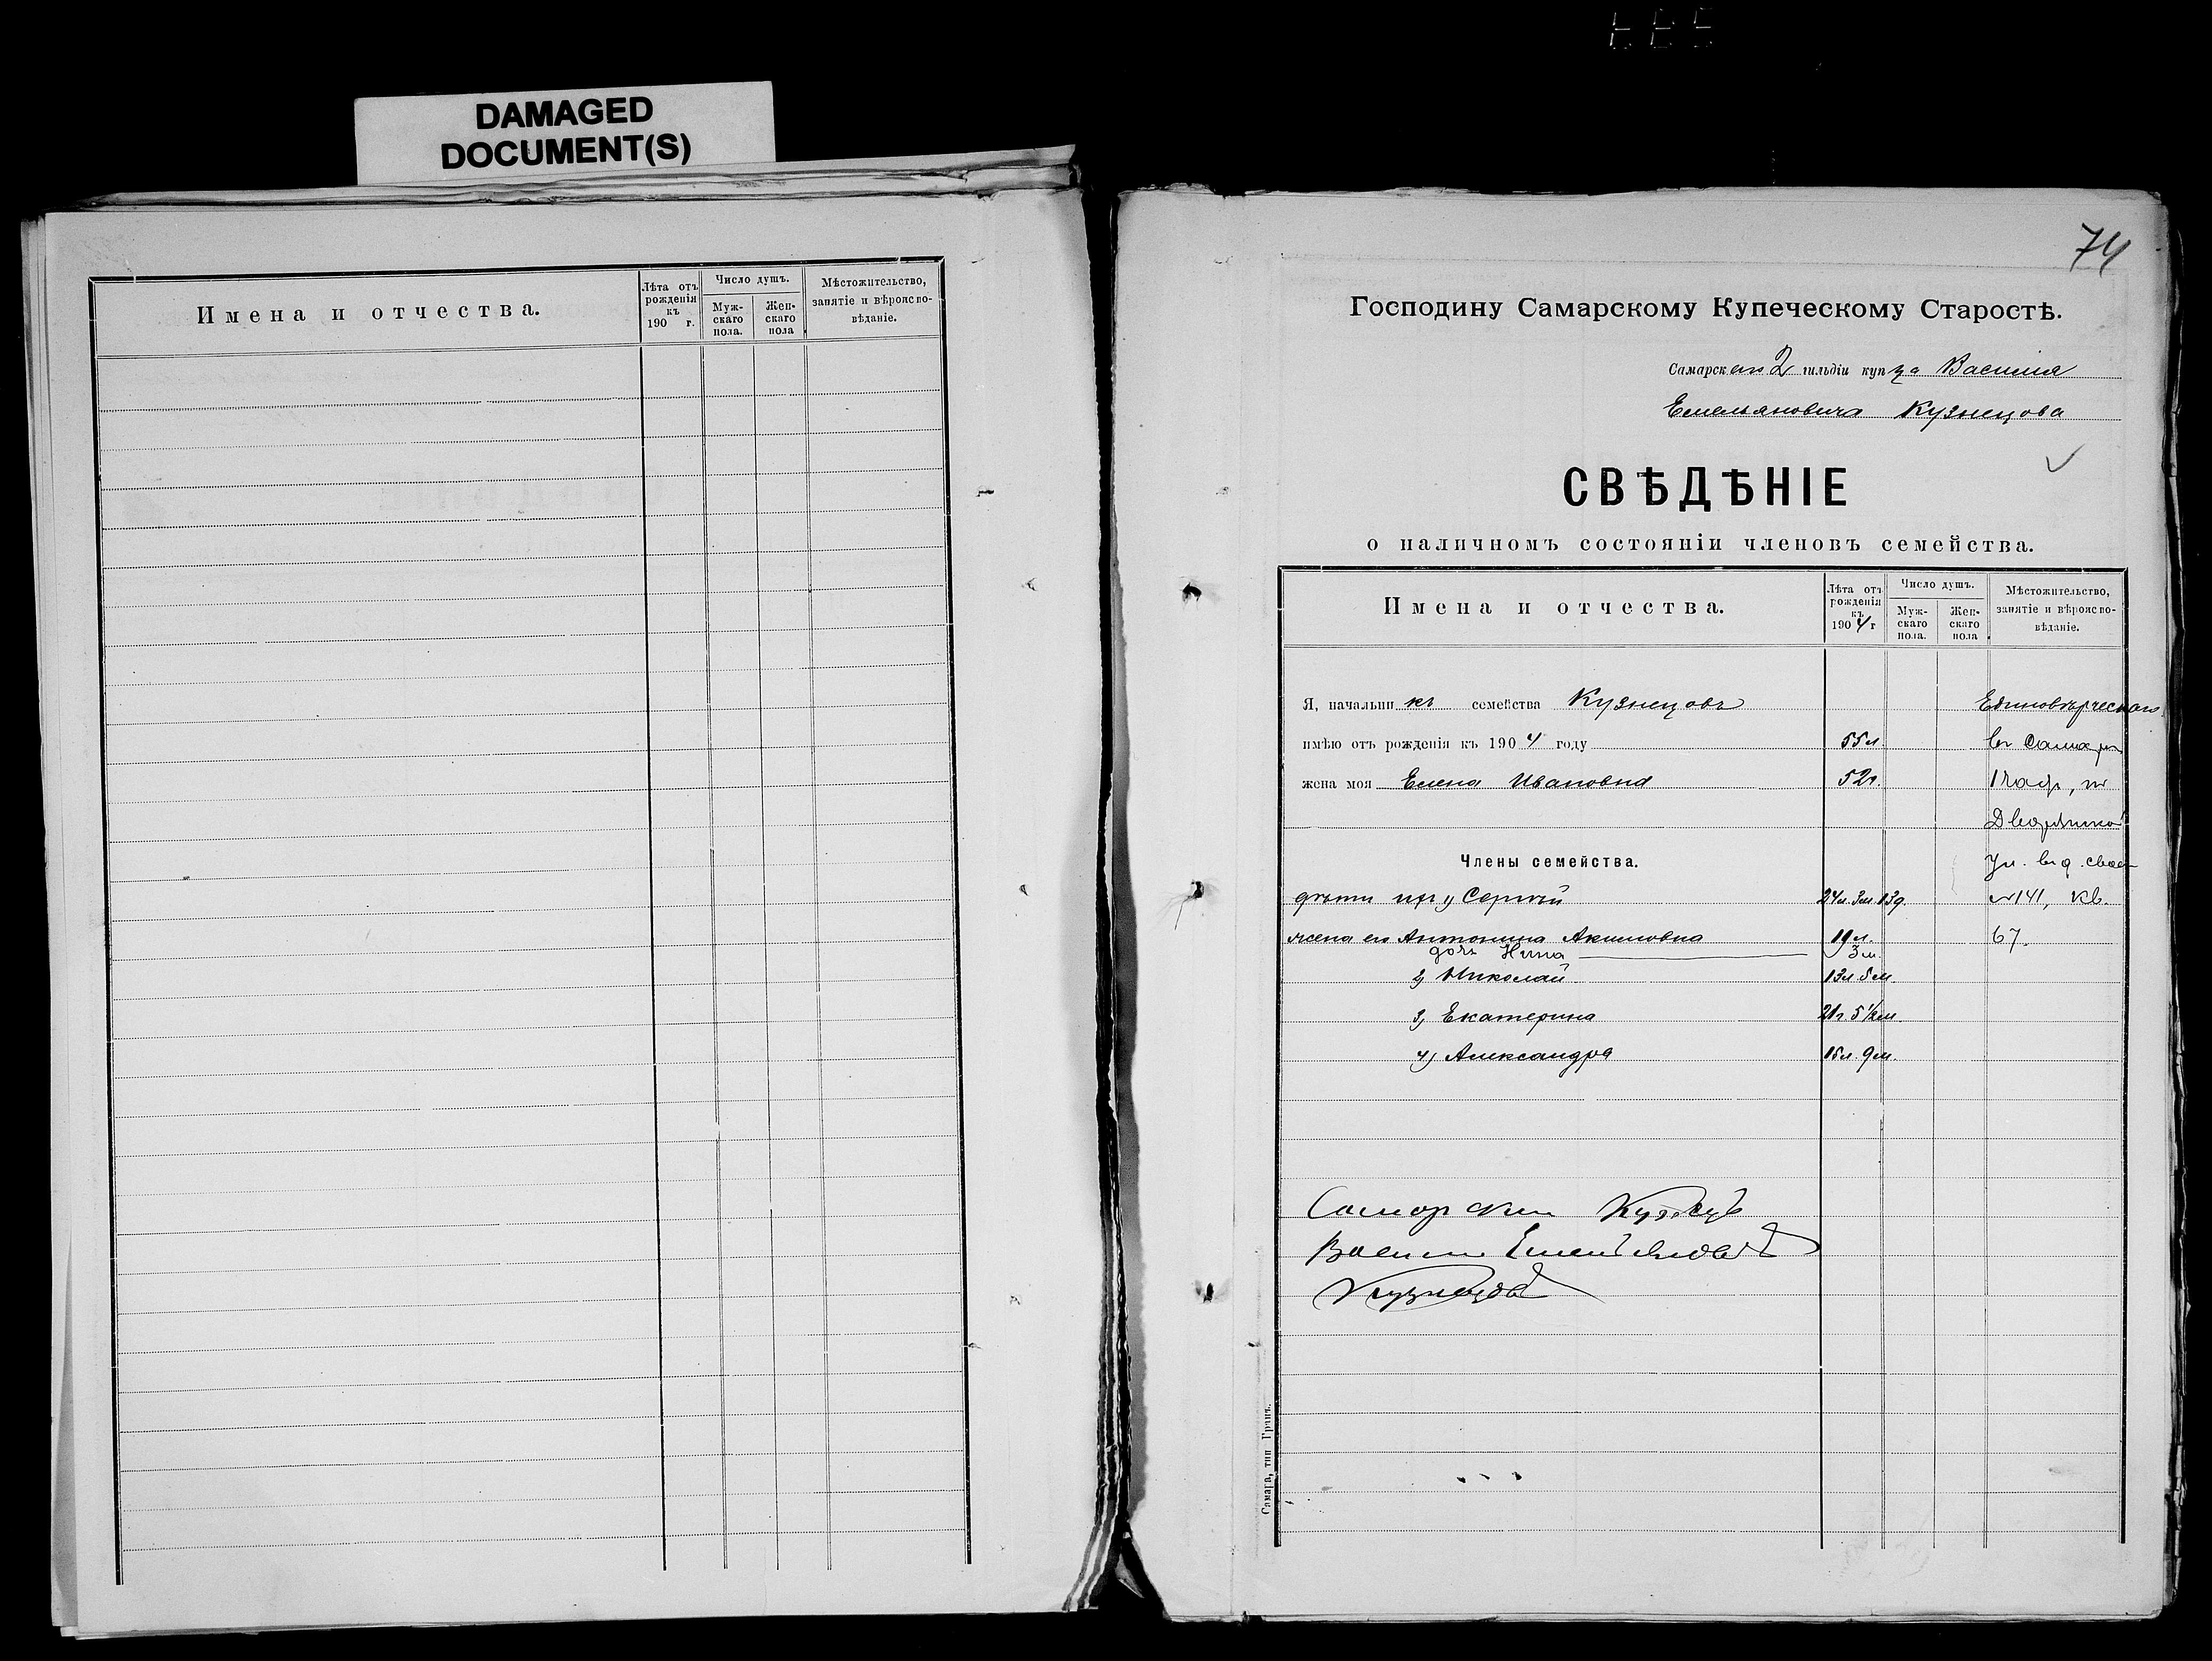 DAMAGED
DOCUMENT(S)
Имена и отчества.
Лѣта отъ рожденія къ 190 г.
Число душъ.
Мужскаго пола.
Женскаго пола
Мѣстожительство, занятіе и вѣроисповѣданіе.
74
Господину Самарскому Купеческому Старостѣ.
Самарскаго 2 гильдіи купца Василія
Емельяновича Кузнецова
СВѢДѢНІЕ
о наличномъ состояніи членовъ семейства.
Имена и отчества.
Лѣта отъ рожденія къ 1904 г
Число душъ.
Мужскаго пола.
Женскаго пола
Мѣстожительство, занятіе и вѣроисповѣданіе.
Я, начальникъ семейства Кузнецовъ Единовѣрческаго
имѣю отъ рожденія къ 1904 году 55 л. въ Самарѣ
жена моя Елена Ивановна 52 г. 1 части, по
Дворянской
Члены семейства. ул. въ д. своемъ
дѣти их 1) Сергѣй 24 л. 3 м. 13 д. №141, кв.
жена его Антонина Акимовна 19 л. 67.
дочь Нина 3 м.
2) Николай 13 л. 5 м.
3) Екатерина 21 г. 5 1/2 м.
4) Александра 15 л. 9 м.
Самарский Купецъ
Василий Емельяновъ
Кузнецовъ
Самара, тип Грань.